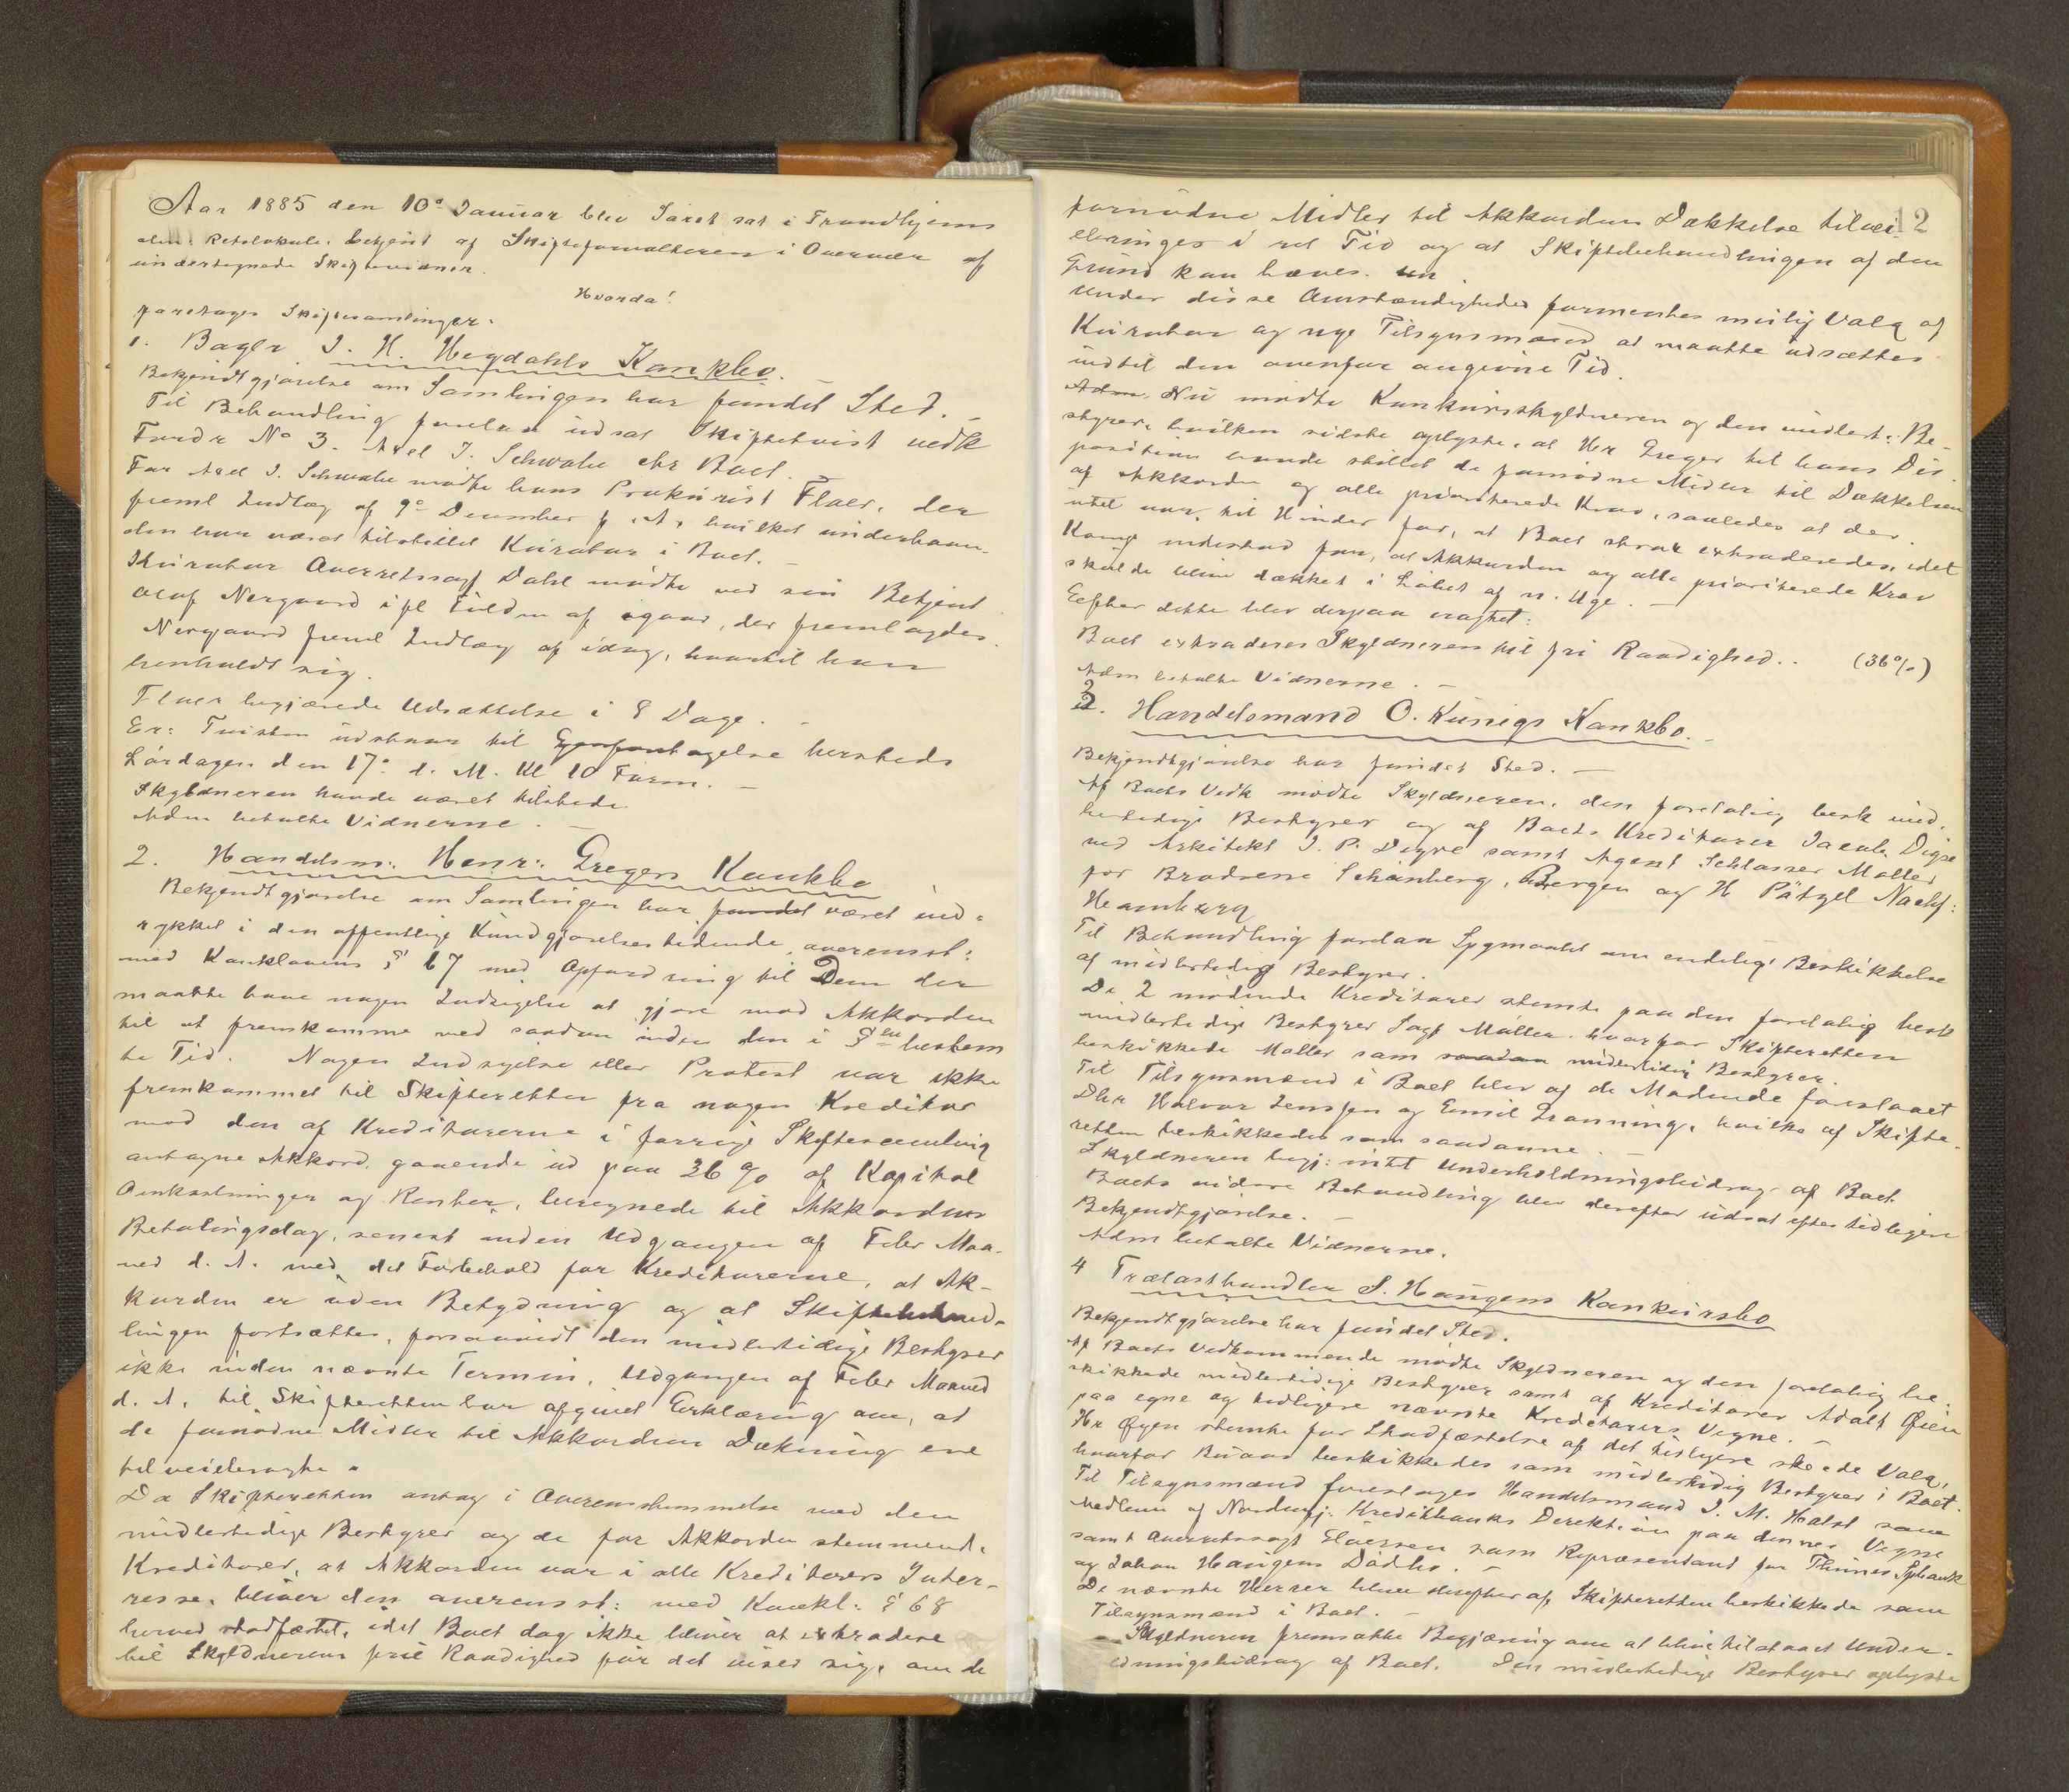 Aar 1885 den 10de Januar blev Faret sat i Trondhjems
alm. Retslokale, betjent af Skifteforvalteren i Overvær af
undertegnede Skiftevidner.
Hvorda!
foretages Skiftesamlinger.
1. Bager J. H. Hegdahls Konkbo.
Bekjendtgjørelse om Samlingen har fundet Sted. –
Til Behandling forelaa udsat Skiftetvist vedk
Fordr No 3. Axel J. Schwabe ctr Boet.
For Axel J. Schwabe mødte hans Prokurist Floer, der
freml Indlæg af 9de December f. A., hvilket underhaan-
den har været tilstillet Kurator i Boet. –
Kurator Overretssagf Dahl mødte ved sin Betjent
Oluf Nergaard ifl Fuldm af igaar, der fremlagdes.
Nergaard freml Indlæg af idag, hvortil han
henholdt sig.
Floer begjærede Udsættelse i 8 Dage. –
Er: Tvisten udstaar til Gjenforetagelse hersteds
Lørdagen den 17de d. M. Kl 10 Form. –
Skyldneren havde været tilstede.
Adm betalte Vidnerne. –
2. Handelsm: Henr: Gregers Konkbo
Bekjendtgjørelse om Samlingen har fundet været ind-
rykket i den offentlige Kundgjørelsestidende, overenst:
med Konklovens § 67 med Opfordring til Dem der
maatte have nogen Indsigelse at gjøre mod Akkorden
til at fremkomme med saadan inden den i §en bestem
te Tid. Nogen Indsigelse eller Protest var ikke
fremkommet til Skifteretten fra nogen Kreditor
mod den af Kreditorerne i forrige Skiftesamling
antagne Akkord, gaaende ud paa 36 % af Kapital
Omkostninger og Renter, beregnede til Akkordens
Betalingsdag, senest inden Udgangen af Febr Maa-
ned d. A. med det Forbehold for Kreditorerne, at Ak-
korden er uden Betydning og at Skiftebehand-
lingen fortsættes, forsaavidt den midlertidige Bestyrer
ikke inden nævnte Termin, Udgangen af Febr Maaned
d. A. til Skifteretten har afgivet Erklæring om, at
de fornødne Midler til Akkordens Dækning ere
tilveiebragte.
Da Skifteretten antog i Overensstemmelse med den
midlertidige Bestyrer og de for Akkorden stemmende
Kreditorer, at Akkorden var i alle Kreditorers Inter-
resse, bliver den overensst: med Konkl: § 68
herved stadfæstet, idet Boet dog ikke bliver at extradere
til Skyldnerens frie Raadighed før det viser sig, om de
12
fornødne Midler til Akkordens Dækkelse tilvei-
ebringes i ret Tid og at Skiftebehandlingen af den
Grund kan hæves. un
Under disse Omstændigheder formentes muligt Valg af
Kurator og nye Tilsynsmænd at maatte udsættes
indtil den ovenfor angivne Tid.
Adm Nu mødte Konkursskyldneren og den midlert: Be-
styrer, hvilken sidste oplyste, at Hr Greger til hans Dis-
position havde stillet de fornødne Midler til Dækkelsen
af Akkorden og alle prioriterede Krav, saaledes at der
intet var til Hinder for, at Boet strax extraderedes, idet
Komp indestod for, at Akkorden og alle prioriterede Krav
skulde blive dækket i Løbet af n. Uge. –
Eefter dette blev derpaa eragtet:
Boet extraderes Skyldneren til fri Raadighed. . (36%)
Adm betalte Vidnerne. –
3. Handelsmand O. Kunigs Konkbo. –
Bekjendtgjørelse har fundet Sted. –
Af Boets Vedk mødte Skyldneren, den foreløbig besk mid-
lertidige Bestyrer og af Boets Kreditorer Jacob Digre
ved Arkitekt J. P. Digre samt Agent Schlasser Møller
for Brødrene Schønberg, Bergen og H Pätzel Nachf:
Hamburg
Til Behandling forelaa Spgmaalet om endelig Beskikkelse
af midlertidig Bestyrer.
De 2 mødende Kreditorer stemte paa den foreløbig besk
midlertidige Bestyrer Sagf Møller, hvorfor Skifteretten
beskikkede Møller som saadan midlertidig Bestyrer.
Til Tilsynsmænd i Boet blev af de Mødende foreslaaet
Dhrr Halvor Jenssen og Emil Granning, hvilke af Skifte-
retten beskikkedes som saadanne. –
Skyldneren begj: intet Underholdningsbidrag af Boet.
Boets videre Behandling blev derefter udsat efter tidligere
Bekjendtgjørelse. –
Adm betalte Vidnerne.
4 Trælasthandler S. Haugens Konkursbo
Bekjendtgjørelse har fundet Sted.
Af Boets Vedkommende mødte Skyldneren og den foreløbig be-
skikkede midlertidige Bestyrer samt af Kreditorer Adolf Øien
paa egne og tidligere nævnte Kreditorers Vegne. –
Hr Øyen stemte for Stadfæstelse af det tidligere skeede Valg,
hvorfor Buaas beskikkedes som midlertidig Bestyrer i Boet.
Til Tilsynsmænd foresloges Handelsmand J. M. Halst som
Medlem af Nordenfj: Kreditbanks Direktion paa dennes Vegne
samt Overretssagf Claussen som Repræsentant for Thinnes Spbank
og Johan Haugens Dødbo. –
De nævnte Herrer bleve derefter af Skifteretten beskikkede som
Tilsynsmænd i Boet. –
Skyldneren fremsatte Begjæring om at blive tilstaaet Under-
oldningsbidrag af Boet. Den midlertidige Bestyrer oplyste